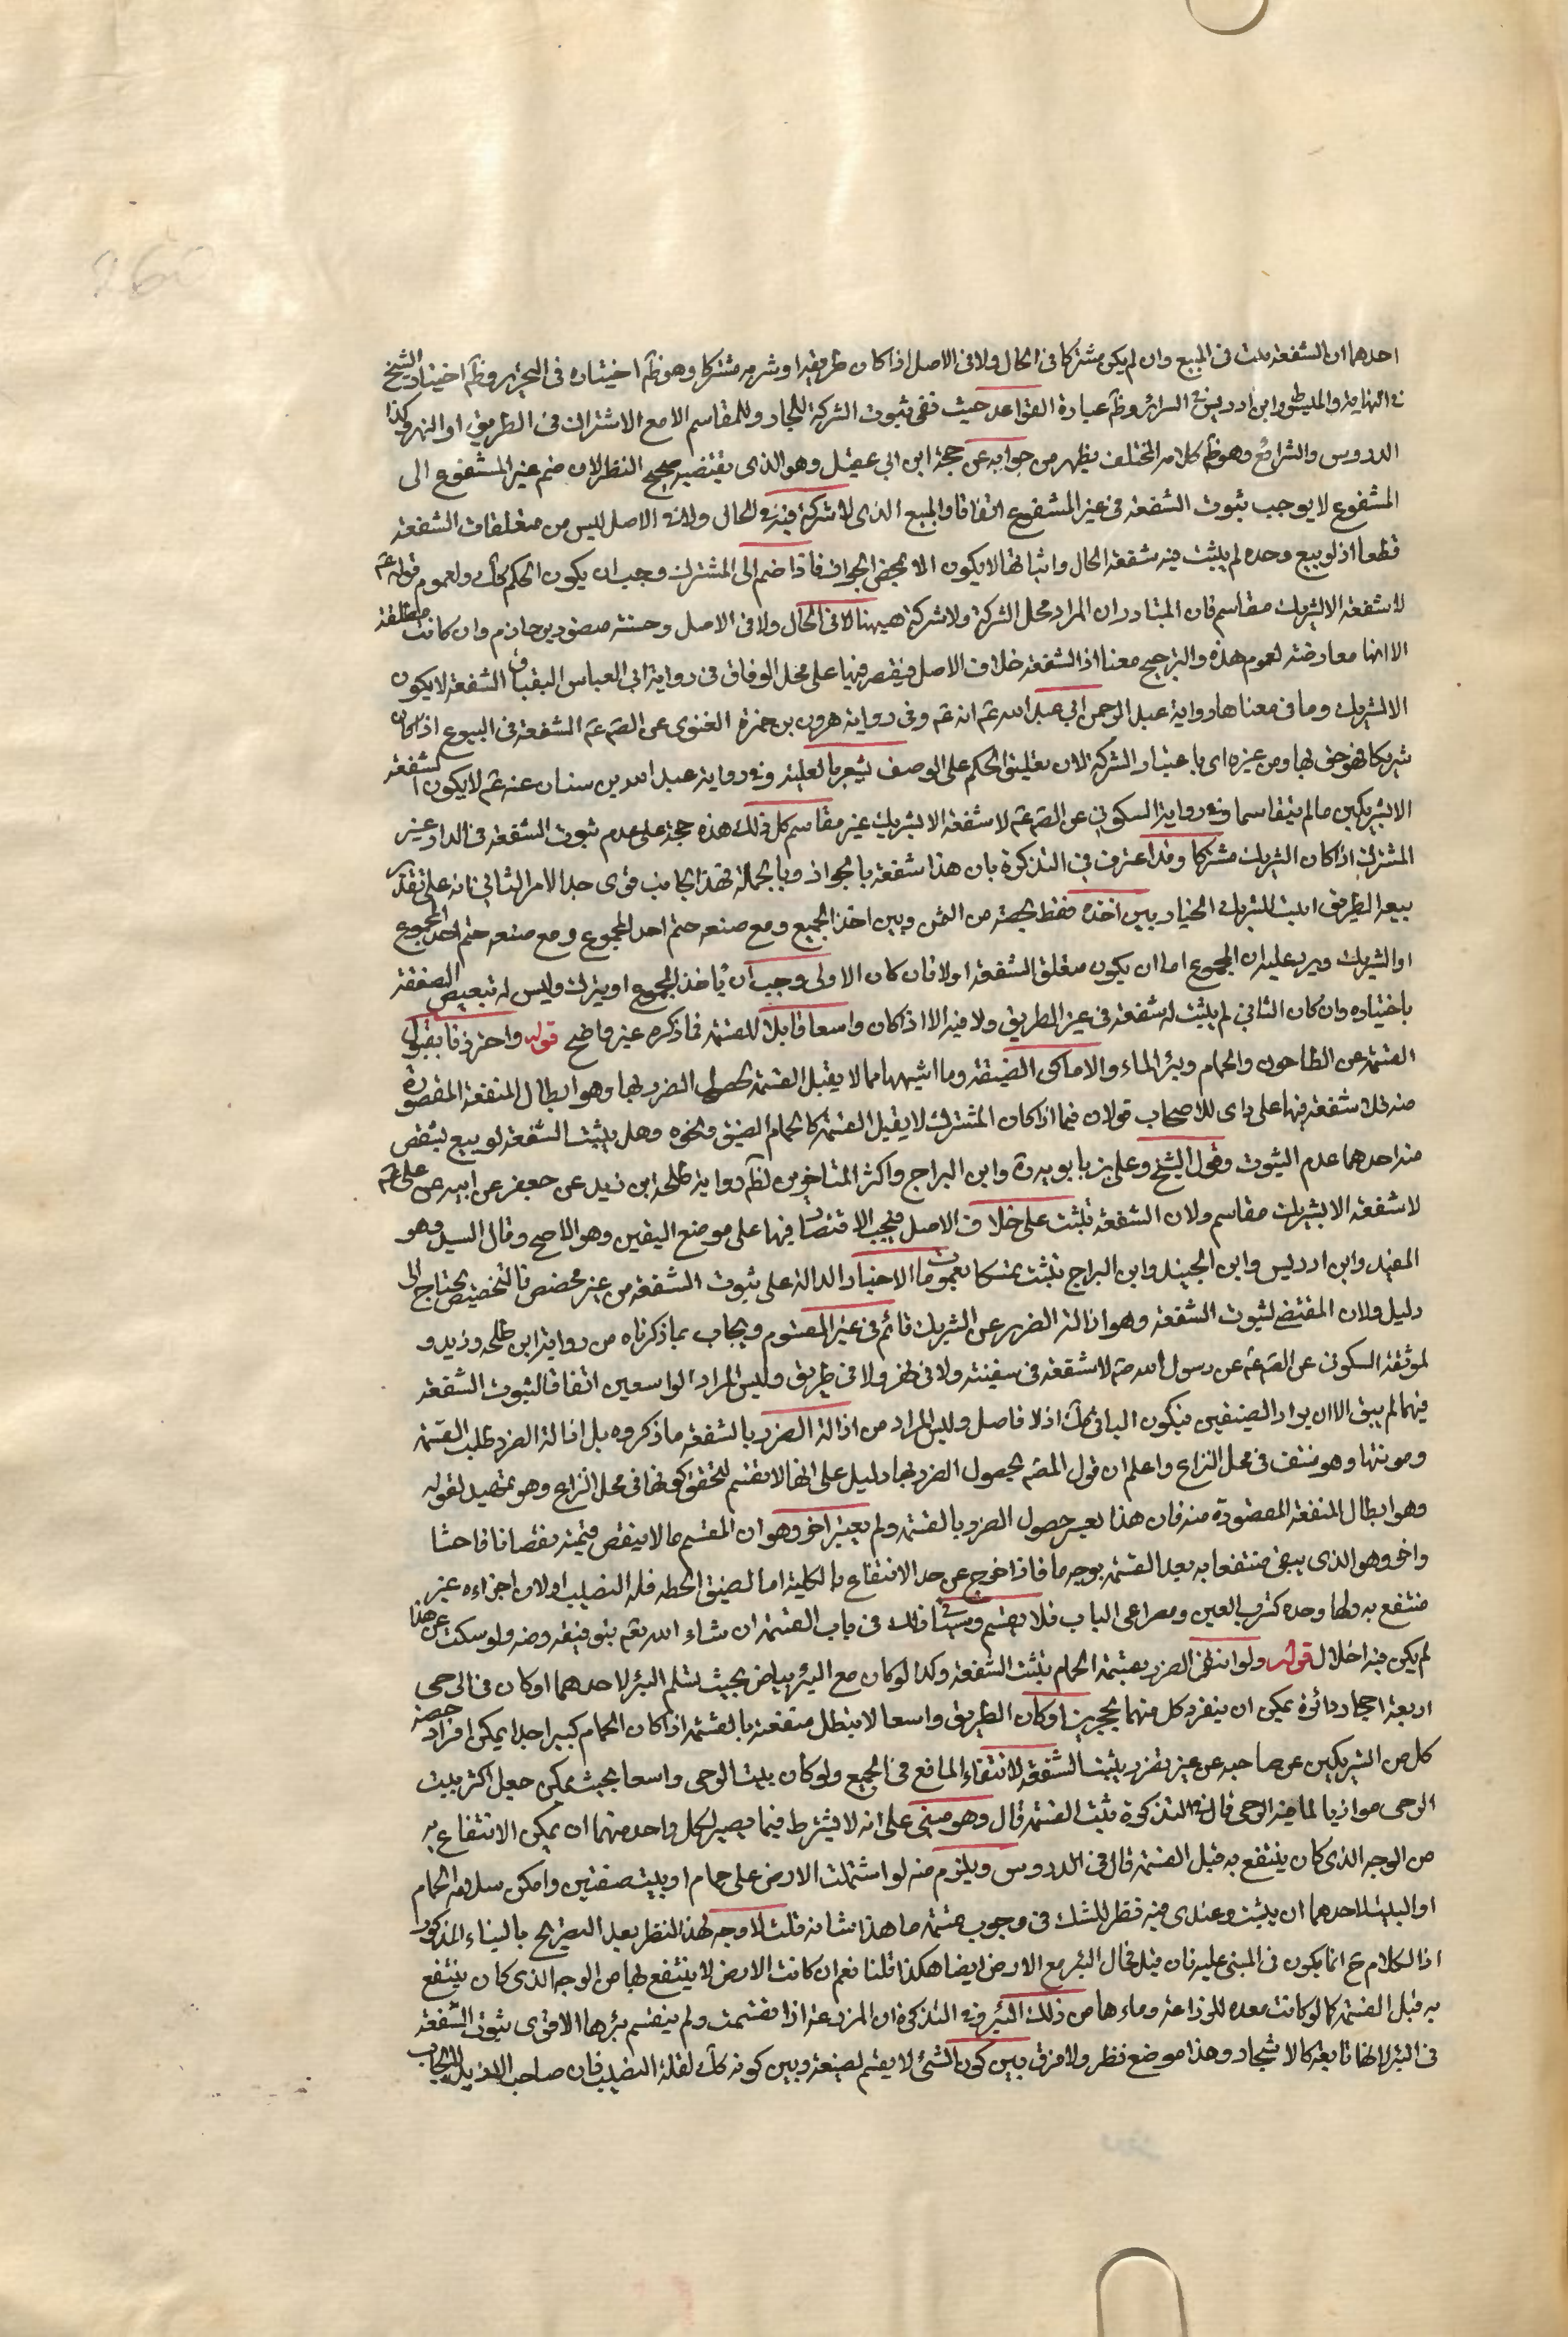 احدهما ان الشفعة تثبت فى المبيع وان لم يكن مشتركا فى الحال ولا فى الاصل اذا كان طريقه او شربه مشتركا وهو ظَ اختياره فى التحرير وظَ اختيار الشيخ
فى النهاية والمبسوط وابن ادريس فى السرائر وظَ عبارة القواعد حيث نفى ثبوت الشركة للجار وللمقاسم الا مع الاشتراك فى الطريق او النهر وكذا
الدروس والشرائع وهو ظَ كلامه المختلف يظهر من جوابه عن حجة ابن ابي عقيل وهو الذى يقتضيه صحيح النظر لان ضم غير المشفوع الى
المشفوع لا يوجب ثبوت الشفعة فى غير المشفوع اتفاقا والمبيع الذى لا شركة فيه فى الحال ولا فى الاصل ليس من متعلقات الشفعة
قطعا اذ لو بيع وحده لم يثبت فيه شفعة الحال واثباتها لا يكون الا لمحض الجوار فاذا ضم الى المشترك وجب ان يكون الحكم كك ولعموم قوله عَ
لا شفعة الا لشريك مقاسم فان المتبادر ان المراد محل الشركة ولا شركة هيهنا لا فى الحال ولا فى الاصل وحسنة منصور بن حازم وان كانت مطلقة
الا انها معارضة لعموم هذه والترجيح معنا اذ الشفعة خلاف الاصل فيقتصر فيها على محل الوفاق فى رواية ابى العباس البقباق الشفعة لا يكون
الا لشريك وما فى معناها رواية عبد الرحمن ابي عبد الله عَ انه عَ وفى رواية هرون بن حمزة الغنوى عن الصَ عَ الشفعة فى البيوع اذا كان
شريكا فهو احق بها من غيره اى باعتبار الشركة لان تعليق الحكم على الوصف يشعر بالعلية وفى رواية عبد الله بن سنان عنه عَ لا يكون الشفعة
الا لشريكين ما لم يتقاسما وفى رواية السكونى عن الصَ عَ لا شفعة الا لشريك غير مقاسم كل ذلك هذه حجة على عدم ثبوت الشفعة فى الدار غير
المشترك اذا كان الشريك مشتركا وقد اعترف فى التذكرة بان هذا شفعة بالجواز وبالجملة فهذا الجانب قوى جدا الامر الثانى انه على تقدير
بيعه الطريق اثبت للشريك الخيار بين اخذه فقط بحصته من الثمن وبين اخذ الجميع ومع ضيقه حتم اخذ المجموع ومع ضيقه حتم اخذ المجموع
او الشريك ويرد عليه ان المجموع اما ان يكون متعلق الشفعة اولا فان كان الاولى وجب ان يأخذ المجموع او يترك وليس له تبعيض الصفقة
باختياره وان كان الثانى لم يثبت له شفعة فى غير الطريق ولا فيه الا اذا كان واسعا قابلا للقسمة فما ذكره غير واضح قوله واحترزنا بقبول
القسمة عن الطاحون والحمام وبئر الماء والاماكن الضيقة وما اشبهها مما لا يقبل القسمة لحصول الضرر بها وهو ابطال المنفعة المقصودة
منه فلا شفعة فيها على راى للاصحاب قولان فيما اذا كان المشترك لا يقبل القسمة كالحمام الضيق ونحوه وهل يثبت الشفعة لو بيع لشقص
منه احدهما عدم الثبوت وقول الشيخ وعلى بن بابويه رة وابن البراج واكثر المتاخرين لظَ رواية طلحة ابن زيد عن جعفر عن ابيه عن على عَ
لا شفعة الا لشريك مقاسم ولان الشفعة تثبت على خلاف الاصل فيجب الاقتصار فيها على موضع اليقين وهو الاصح وقال السيد وهو
المفيد وابن ادريس وابن الجنيد وابن البراج تثبت تمسكا بعمومات الاخبار الدالة على ثبوت الشفعة من غير مخصص فالتخصيص يحتاج الى
دليل ولان المقتضى لثبوت الشفعة وهو ازالة الضرر عن الشريك قائم فى غير المقسوم ويجاب بما ذكرناه من رواية ابن طلحة وزيد و
لموثقة السكونى عن الصَ عَ عن رسول الله صَ لا شفعة فى سفينة ولا فى نهر ولا فى طريق وليس المراد الواسعين اتفاقا لثبوت الشفعة
فيهما لم يبق الا ان يراد الضيقين فيكون الباقى كك اذ لا فاصل وليس المراد من ازالة الضرر بالشفعة ما ذكروه بل ازالة الضرر طلب القسمة
ومونتها وهو منتف فى محل النزاع واعلم ان قول المصَ لحصول الضرر بها دليل على انها لا تقسم ليتحقق كونها فى محل النزاع وهو تمهيد لقوله
وهو ابطال المنفعة المقصودة منه فان هذا تفسير حصول الضرر بالقسمة ولم يعتبر اخر وهو ان المقسم ما لا ينقص قيمته نقصانا فاحشا
واخر وهو الذى يبقى منتفعا به بعد القسمة بوجه ما فاذا خرج عن حد الانتفاع بالكلية اما لضيق الحطه فله النصيب او لان اجزاءه غير
منتفع به ولها وحده كثوب العين ومصراعى الباب فلا يقسم وسياتى ذلك فى باب القسمة ان شاء الله تعَ بتوفيقه ومنه ولو سكت عن هذا
لم يكن فيه اخلال قوله ولو انتفى الضرر بقسمة الحمام تثبت الشفعة وكذا لو كان مع البئر بياض بحيث تسلم البئر لاحدهما او كان فى الرحى
اربعة احجار دائرة يمكن ان ينفرد كل منهما بحجرين او كان الطريق واسعا لا يبطل منفعته بالقسمة اذا كان الحمام كبيرا جدا يمكن افراز حصة
كل من الشريكين عن صاحبه عن غير تضرر يثبت الشفعة لانتفاء المانع فى الجميع ولو كان بيت الرحى واسعا بحيث يمكن جعل اكثر بيت
الرحى موازيا لما فيه الرحى قال فى التذكرة تثبت القسمة قال وهو مبنى على انه لا يشترط فيما يصير لكل واحد منهما ان يمكن الانتفاع به
من الوجه الذى كان ينتفع به قبل القسمة قال فى الدروس ويلزم منه لو اشتملت الارض على حمام او بيت ضيقين وامكن سلامة الحمام
او البيت لاحدهما ان يثبت وعندى فيه نظر للشك فى وجوب قسمة ما هذا شانه قلت لا وجه لهذا النظر بعد التصريح بالبناء المذكور
اذ الكلام ح انما يكون فى المبنى عليه فان قيل فحال البئر مع الارض ايضا هكذا قلنا نعم ان كانت الارض لا ينتفع بها من الوجه الذى كان ينتفع
به قبل القسمة كما لو كانت معده للزراعة وماءها من ذلك البئر وفى التذكرة ان المزرعة اذا قسمت ولم ينقسم بئرها الاقوى ثبوت الشفعة
فى البئر لانها تابعة كالاشجار وهذا موضع نظر ولا فرق بين كون الشئ لا يقسم لضيقه وبين كونه كك لقلة النصيب فان صاحب الازيد